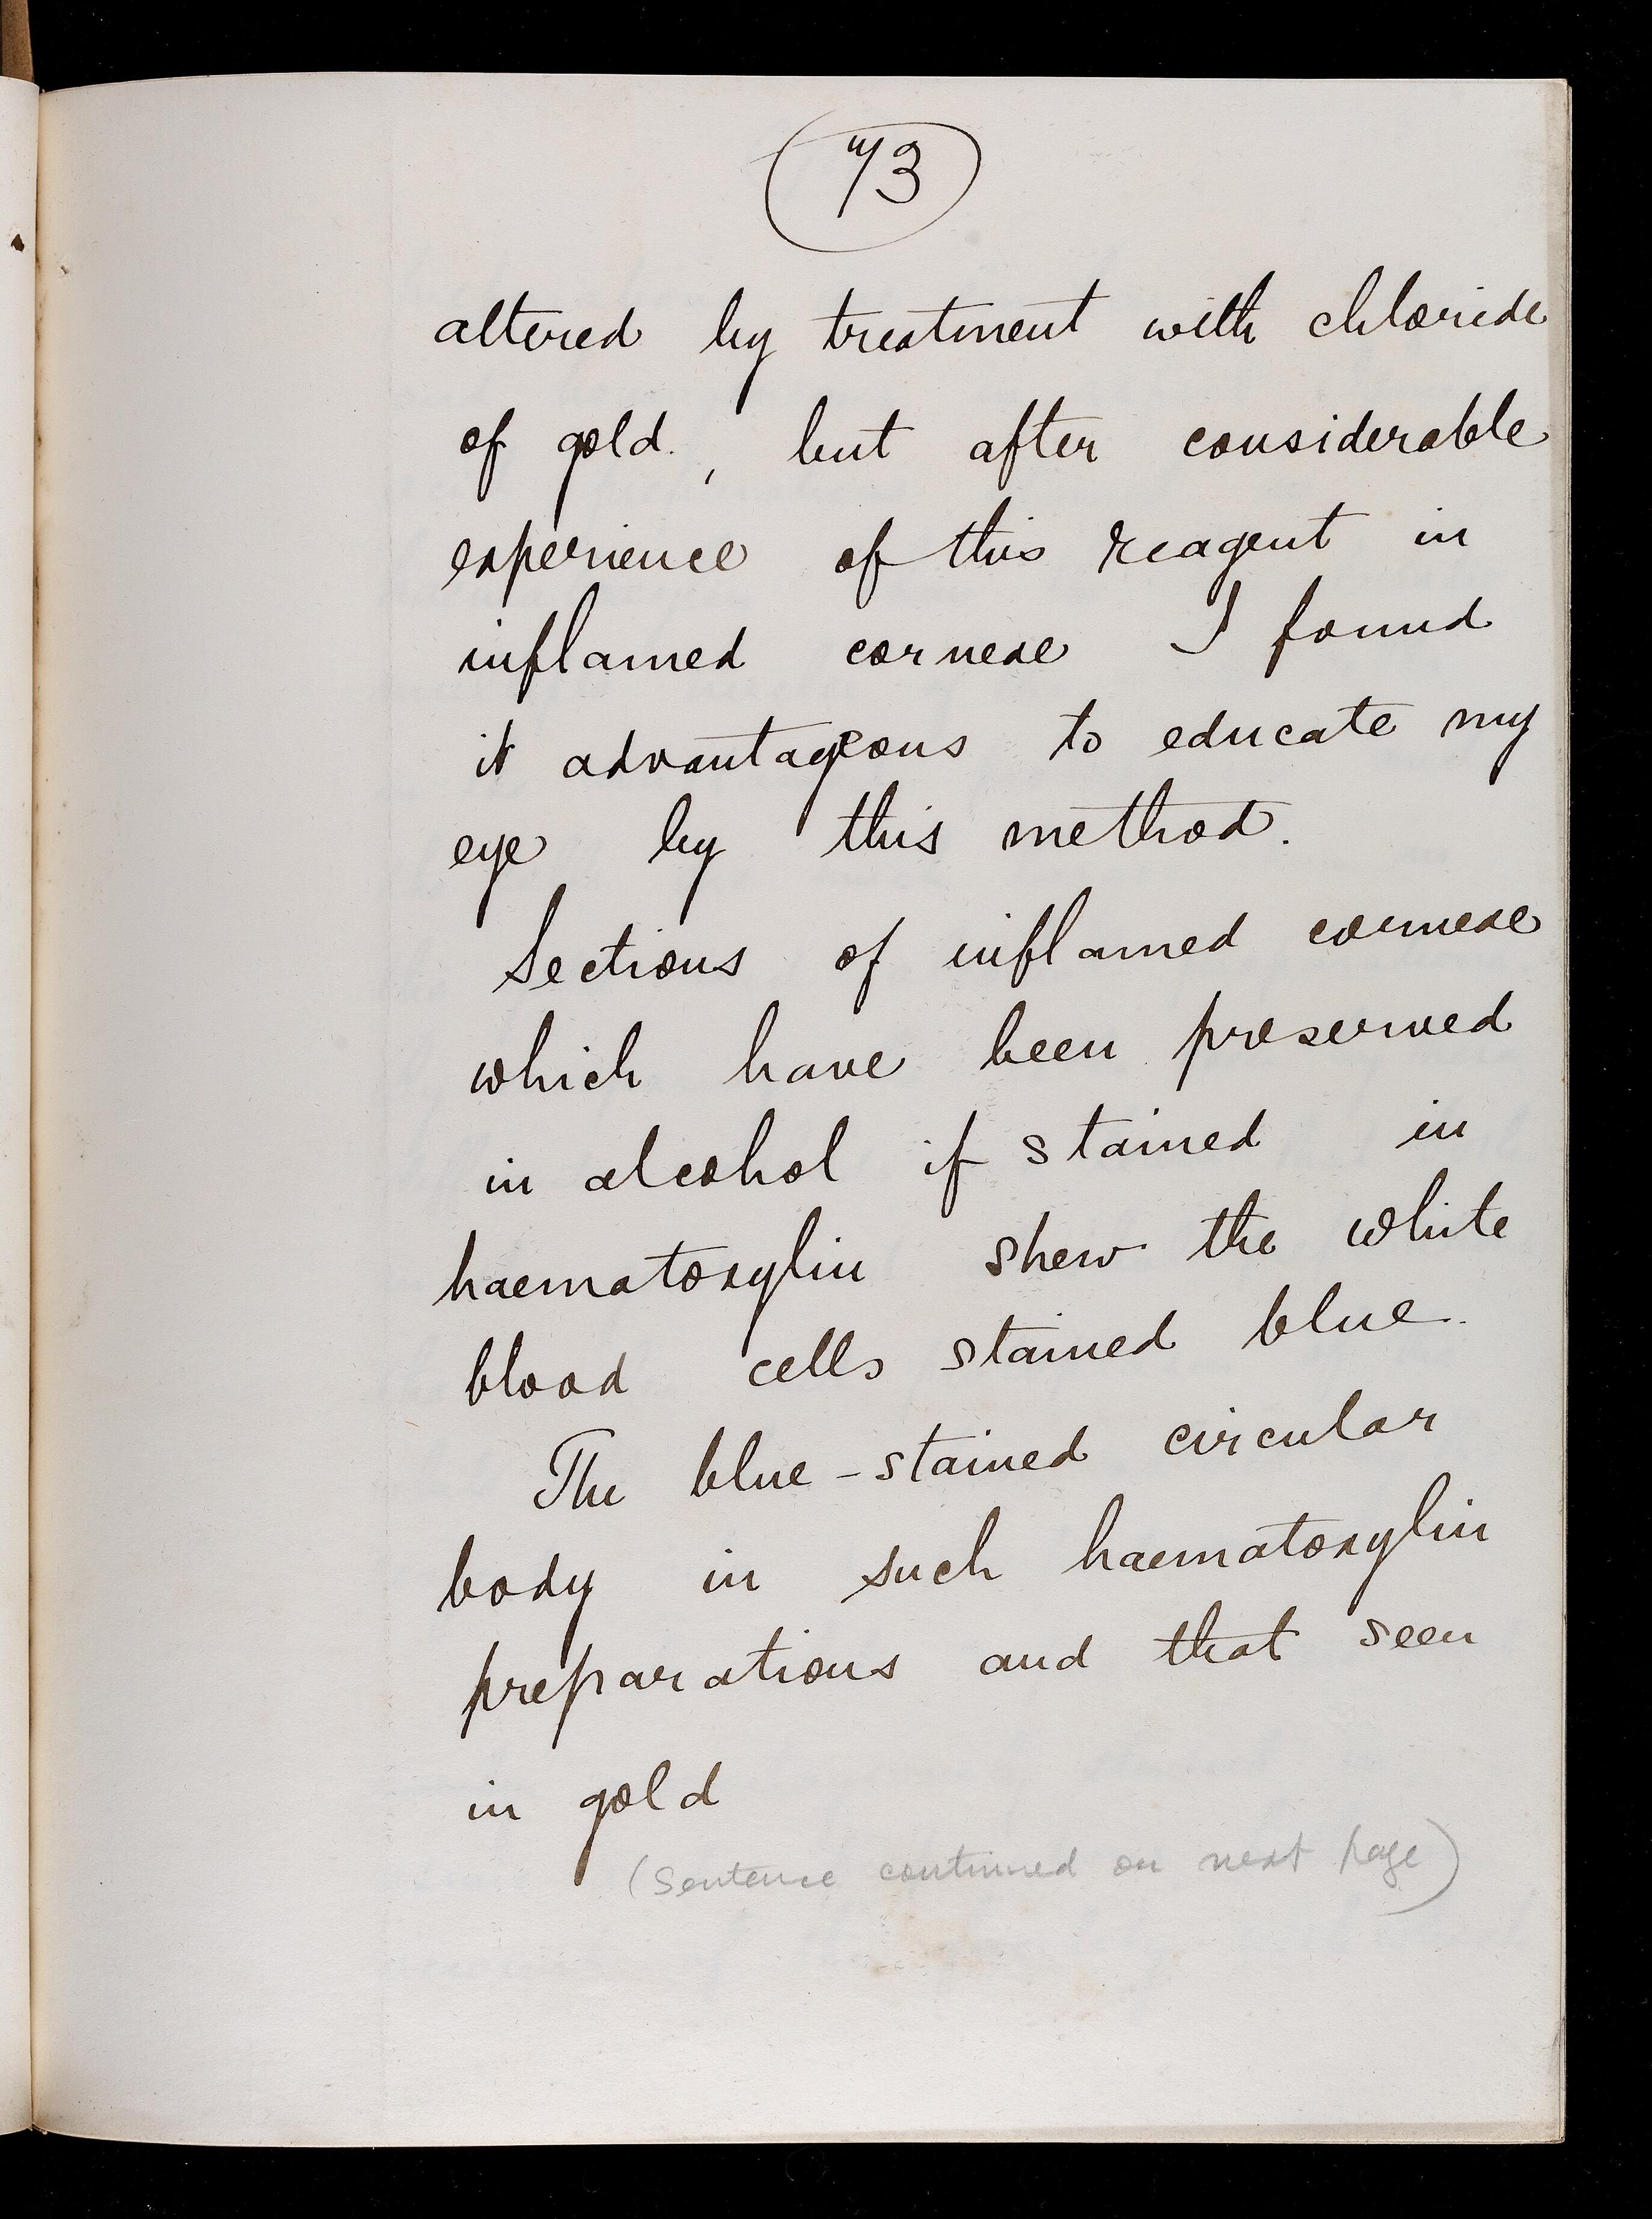 73
altered by treatment with chloride
of gold., but after considerable
experience of this reagent in
inflamed corneae I found
it advantageous to educate my
eye by this method.
Sections of inflamed corneae
which have been preserved
in alcohol if stained in
haematoxylin shew the white
blood cells stained blue.
The blue-stained circular
body in such haematoxylin
preparations and that seen
in gold
(Sentence continued on next page)